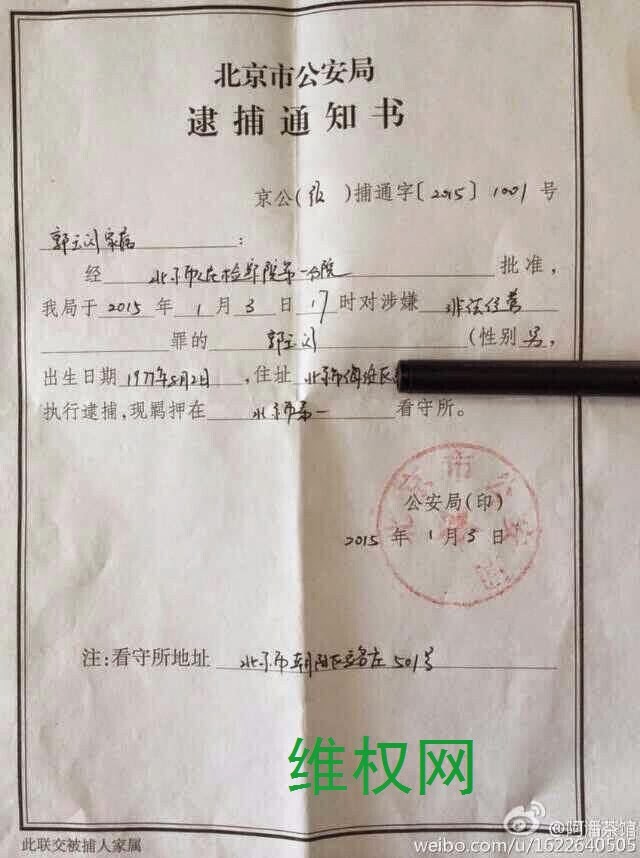 北京市公安局
逮捕通知书
京公(预)捕通字〔2015〕1001号
郭玉闪家属:
经 北京市人民检察院第一分院 批准,
我局于2015年1月3日17时对涉嫌 非法经营
罪的 郭玉闪 (性别男,
出生日期1977年8月2日,住址 北京市海淀区
执行逮捕,现羁押在 北京市第一 看守所。
公安局(印)
2015年1月3日
注:看守所地址 北京市朝阳区豆各庄501号
维权网
@阿潘茶馆
此联交被捕人家属
weibo.com/u/1622640505